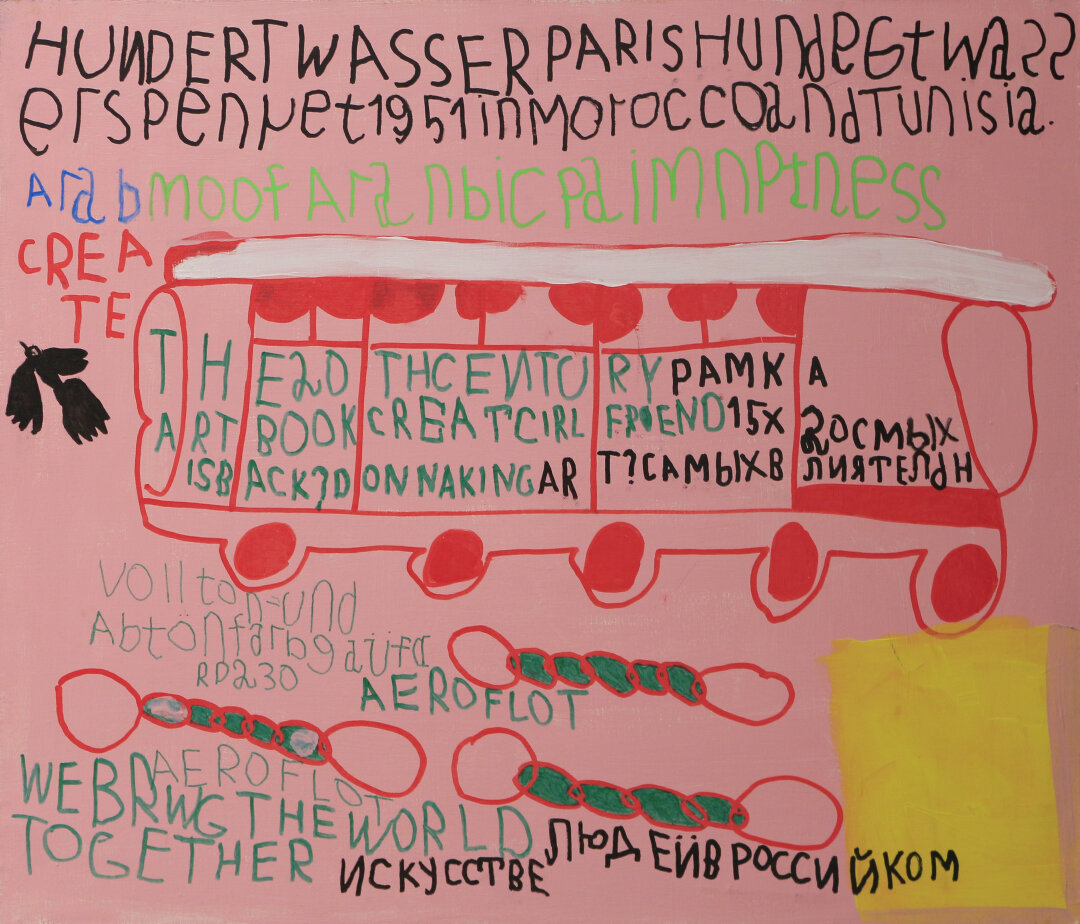 HUNDERTWASSERPARISHUNdeGtwass
erspenyet1951inMoroccoandTunisia.
ArabmoofAranbicpaimnptness
CREA
TE
THE20THCENTURYРАМКА
ARTBOOKCREAT'CIRLFRIEND15X20СМЫХ
ISBACK?DONNAKINGART?САМЫХВЛИЯТЕЛЬН
Vollton-und
Abtönfarbgaüfa
RD230
AEROFLOT
AEROFLOT
WEBRINGTHEWORLD
TOGETHER
ИСКУССТВЕЛЮДЕЙВРОССИЙКОМ